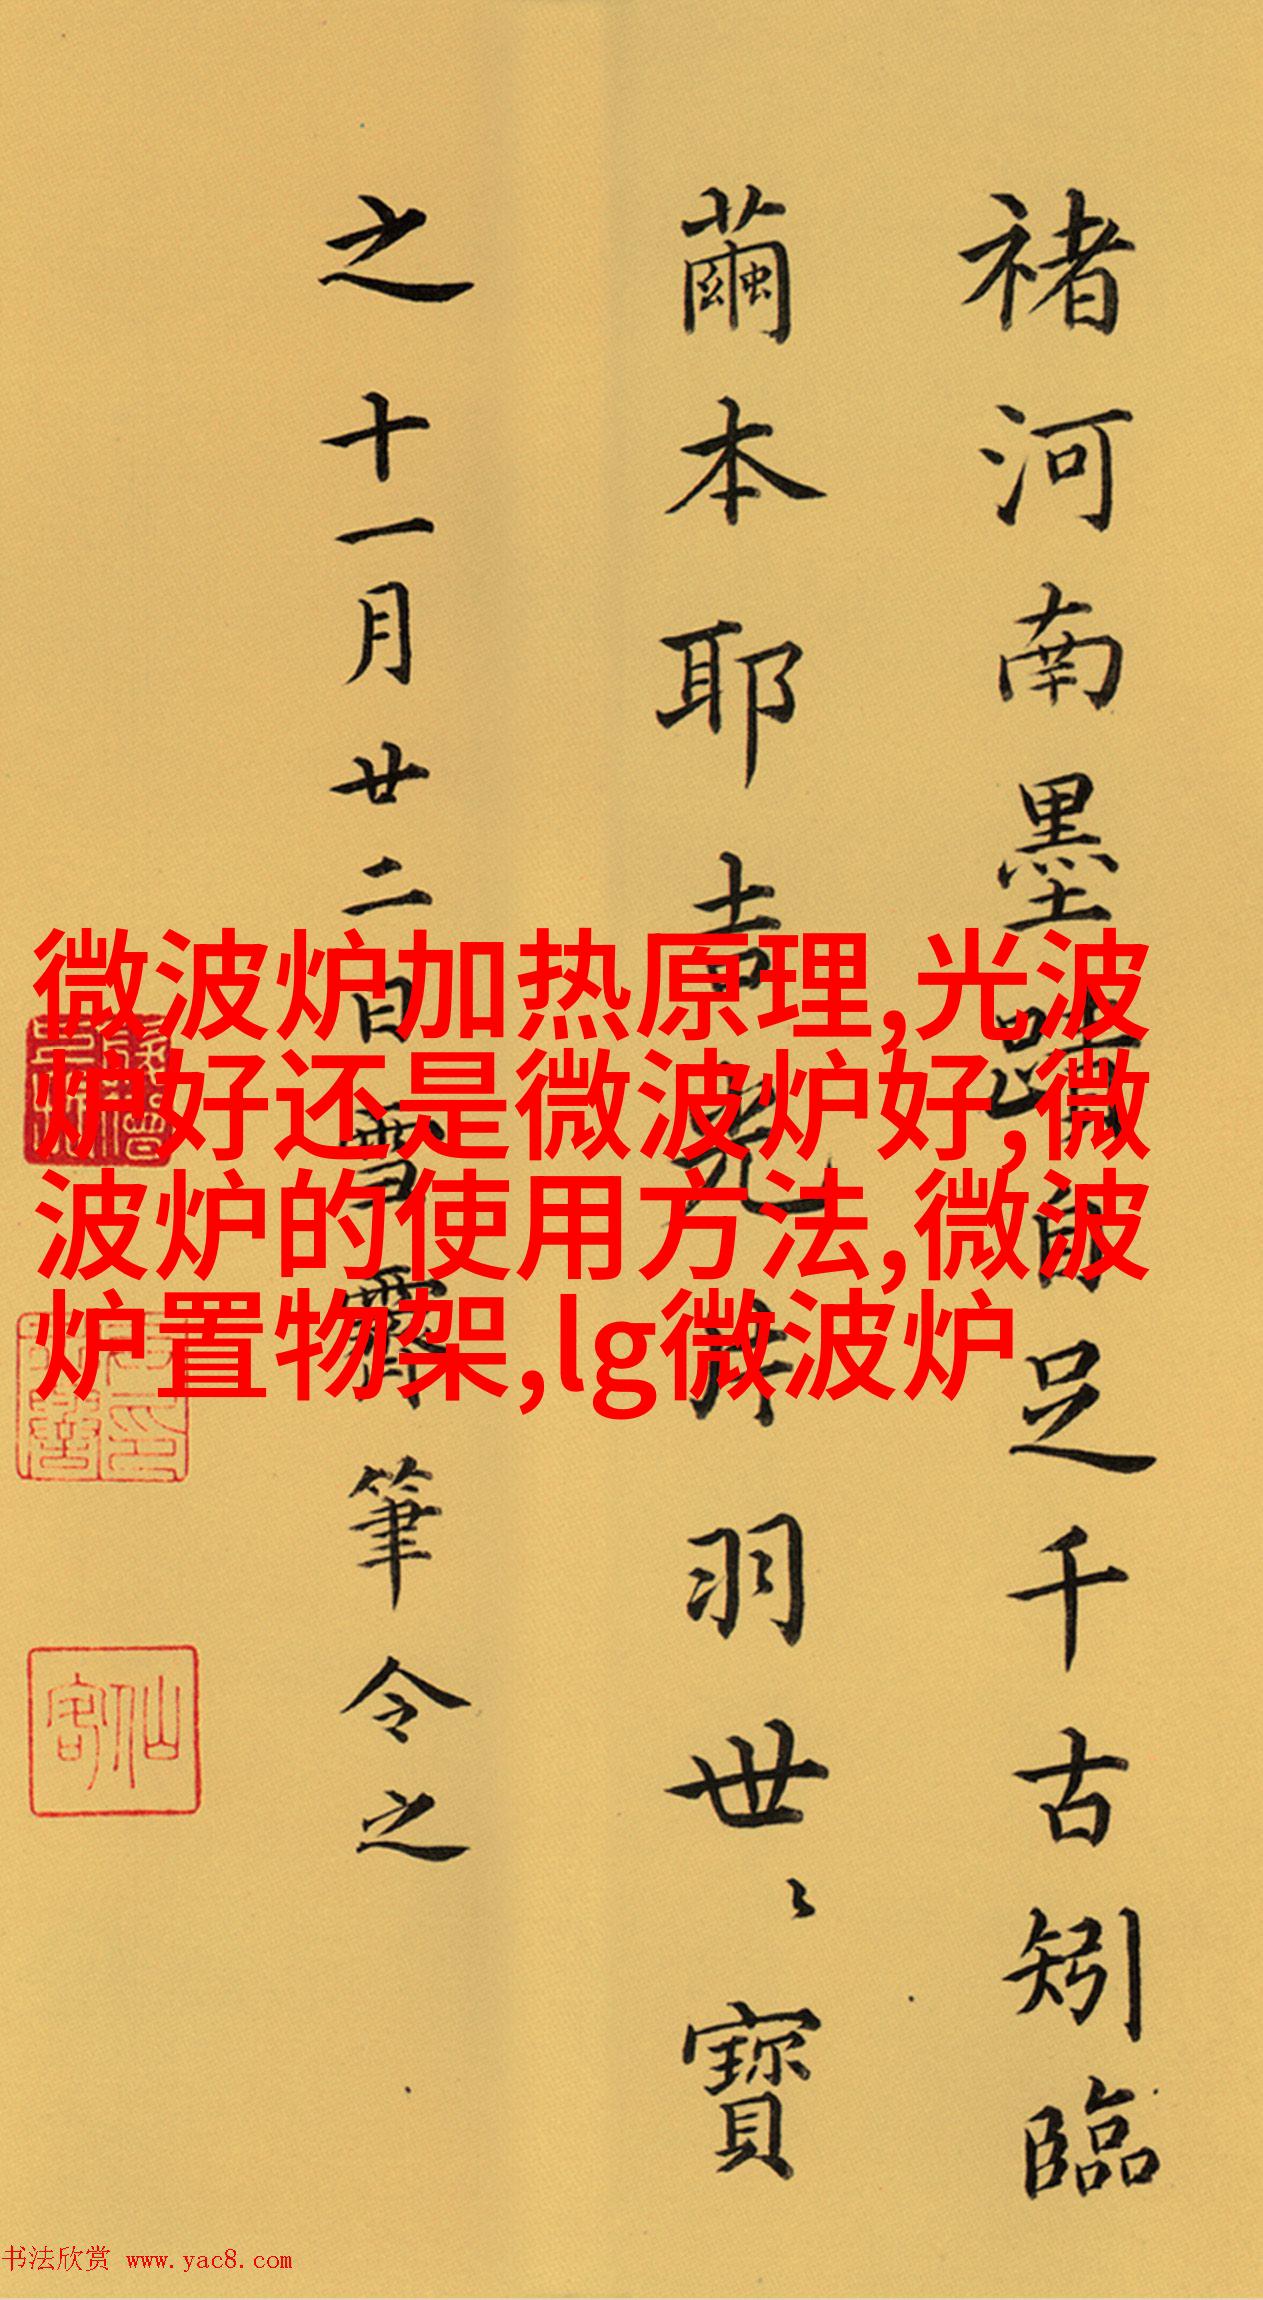 褚河南墨蹟自足千古矧臨
繭本耶吉光片羽世〻寶
之十一月廿二日雪霽筆令之
微波炉加热原理,光波
炉好还是微波炉好,微
波炉的使用方法,微波
炉置物架,lg微波炉
仙客
书法欣赏 www.yac8.com